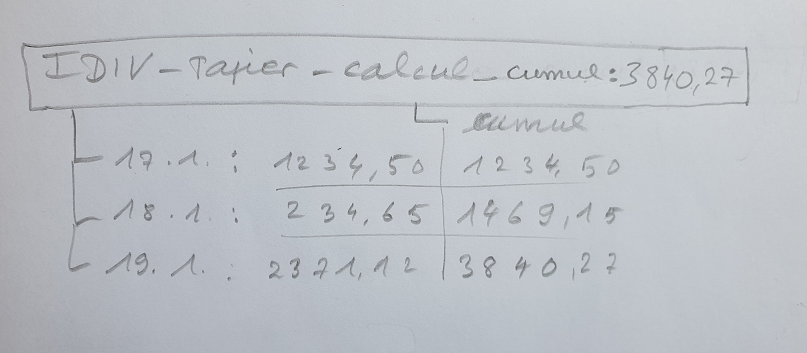 IDIV-Papier-calcul-cumul:3840,27
cumul
17.1. : 1234,50 1234,50
18.1. : 234,65 1469,15
19.1. : 2371,12 3840,27